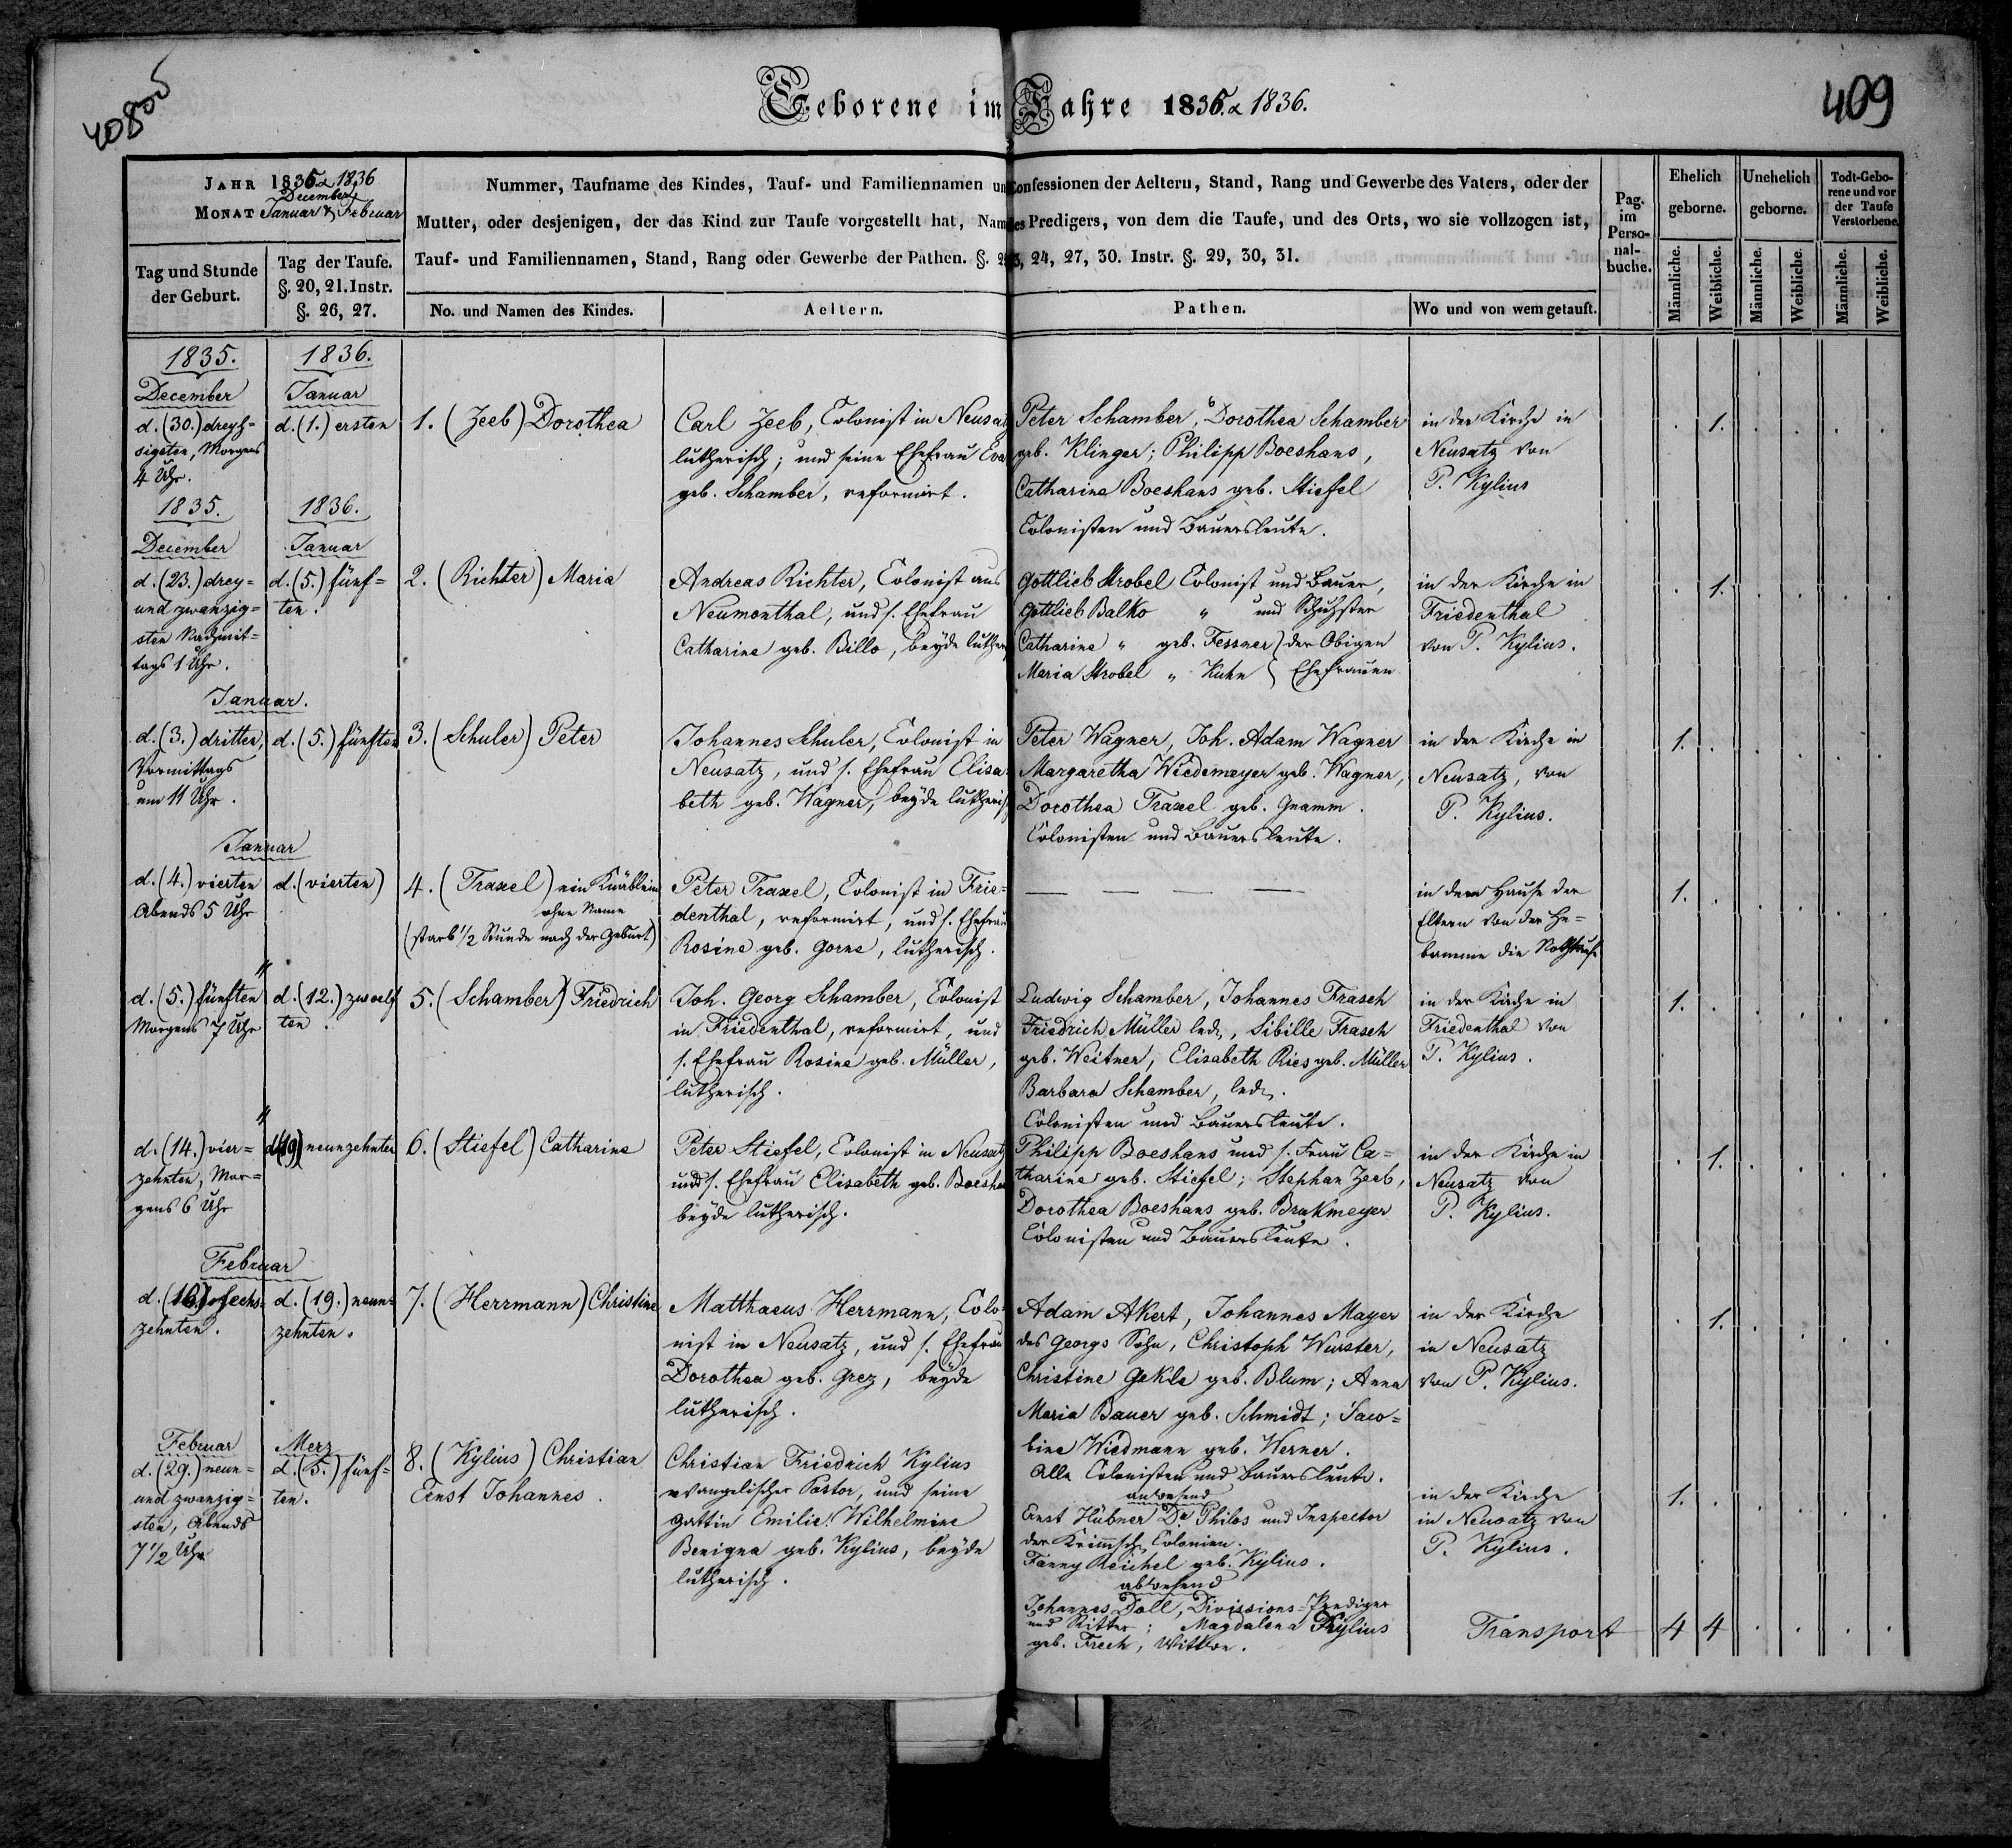 408 ob
409
Geborene im Jahre 1835. & 1836.
JAHR 1835 & 1836
December
MONAT Januar & Februar
Nummer, Taufname des Kindes, Tauf- und Familiennamen und Confessionen der Aeltern, Stand, Rang und Gewerbe des Vaters, oder der
Mutter, oder desjenigen, der das Kind zur Taufe vorgestellt hat, Name des Predigers, von dem die Taufe, und des Orts, wo sie vollzogen ist,
Tauf- und Familiennamen, Stand, Rang oder Gewerbe der Pathen. §. 23, 24, 27, 30. Instr. §. 29, 30, 31.
Pag.
im
Perso-
nal-
buche.
Ehelich
geborne.
Unehelich
geborne.
Todt-Gebo-
rene und vor
der Taufe
Verstorbene.
Tag und Stunde
der Geburt.
Tag der Taufe.
§. 20, 21. Instr.
§. 26, 27.
No. und Namen des Kindes.
Aeltern.
Pathen.
Wo und von wem getauft.
Männliche.
Weibliche.
Männliche.
Weibliche.
Männliche.
Weibliche.
1835.
December
d. (30.) dreyß-
sigsten, Morgens
4 Uhr.
1836.
Januar
d. (1.) ersten
1. (Zeeb) Dorothea
Carl Zeeb, Colonist in Neusatz
lutherisch; und seine Ehefrau Eva
geb. Schamber, reformirt.
Peter Schamber, Dorothea Schamber
geb. Klinger; Philipp Boeshans,
Catharina Boeshans geb. Stiefel
Colonisten und Bauersleute.
in der Kirche in
Neusatz von
P. Kylius
1.
1835.
December
d. (23.) drey-
und zwanzig-
sten Nachmit-
tags 1 Uhr.
1836.
Januar
d. (5.) fünf-
ten.
2. (Richter) Maria
Andreas Richter, Colonist aus
Neumonthal, und s. Ehefrau
Catharina geb. Billo, beyde luther
Gottlieb Strobel Colonist und Bauer,
Gottlieb Balko " und Schuhster
Catharina " geb. Fessner } der Obigen
Maria Strobel " Kuhn } Ehefrauen
in der Kirche in
Friedenthal
von P. Kylius.
1.
Januar.
d. (3.) dritten,
Vormittags
um 11 Uhr.
d. (5.) fünften
3. (Schuler) Peter
Johannes Schuler, Colonist in
Neusatz, und s. Ehefrau Elisa-
beth geb. Wagner, beyde lutherisch
Peter Wagner, Joh. Adam Wagner
Margaretha Wiedemeyer geb. Wagner,
Dorothea Traxel geb. Gnamm.
Colonisten und Bauersleute.
in der Kirche in
Neusatz, von
P. Kylius.
1.
Januar
d. (4.) vierten
Abends 5 Uhr
d. (vierten)
4. (Traxel) ein Knäblein
ohne Name
(starb 1/2 Stunde nach der Geburt)
Peter Traxel, Colonist in Frie-
denthal, reformirt, und s. Ehefrau
Rosine geb. Gorne, lutherisch.
— — — —
in dem Hause der
Eltern von der He-
bamme die Nothtaufe
1.
"
d. (5.) fünften
Morgens 7 Uhr
d. (12.) zwoelf
ten.
5. (Schamber) Friedrich
Joh. Georg Schamber, Colonist
in Friedenthal, reformirt, und
s. Ehefrau Rosine geb. Müller,
lutherisch.
Ludwig Schamber, Johannes Frasch
Friedrich Müller led., Sibille Frasch
geb. Weitner, Elisabeth Ries geb. Müller
Barbara Schamber, led.
Colonisten und Bauersleute.
in der Kirche in
Friedenthal von
P. Kylius.
1.
"
d. (14.) vier-
zehnten, Mor-
gens 6 Uhr
d. (19) neunzehnten
6. (Stiefel) Catharine
Peter Stiefel, Colonist in Neusatz
und s. Ehefrau Elisabeth geb. Boeshans
beyde lutherisch.
Philipp Boeshans und s. Frau Ca-
tharine geb. Stiefel; Stephan Zeeb,
Dorothea Boeshans geb. Brakmeyer
Colonisten und Bauersleute.
in der Kirche in
Neusatz von
P. Kylius.
1.
Februar
d. (16.) sechs-
zehnten.
d. (19.) neun-
zehnten.
7. (Herrmann) Christine
Matthaeus Herrmann, Colo-
nist in Neusatz, und s. Ehefrau
Dorothea geb. Grez, beyde
lutherisch.
Adam Akert, Johannes Mayer
des Georgs Sohn, Christoph Wurster,
Christine Gekle geb. Blum; Anna
Maria Bauer geb. Schmidt; Jaco-
bine Wiedmann geb. Werner.
Alle Colonisten und Bauersleute.
in der Kirche
in Neusatz
von P. Kylius.
1.
Februar
d. (29.) neun-
und zwanzig-
sten, Abends
7 1/2 Uhr
Merz
d. (5.) fünf-
ten.
8. (Kylius) Christian
Ernst Johannes.
Christian Friedrich Kylius
evangelischer Pastor, und seine
Gattin Emilie Wilhelmine
Benigna geb. Kylius, beyde
lutherisch.
anwesend
Ernst Hübner Dr Philos und Inspector
der Krimsch. Colonien.
Fanny Reichel geb. Kylius.
abwesend
Johannes Doll, Divisions-Prediger
und Ritter; Magdalena Kylius
geb. Frech, Wittwe.
in der Kirche
in Neusatz von
P. Kylius.
1.
Transport
4
4